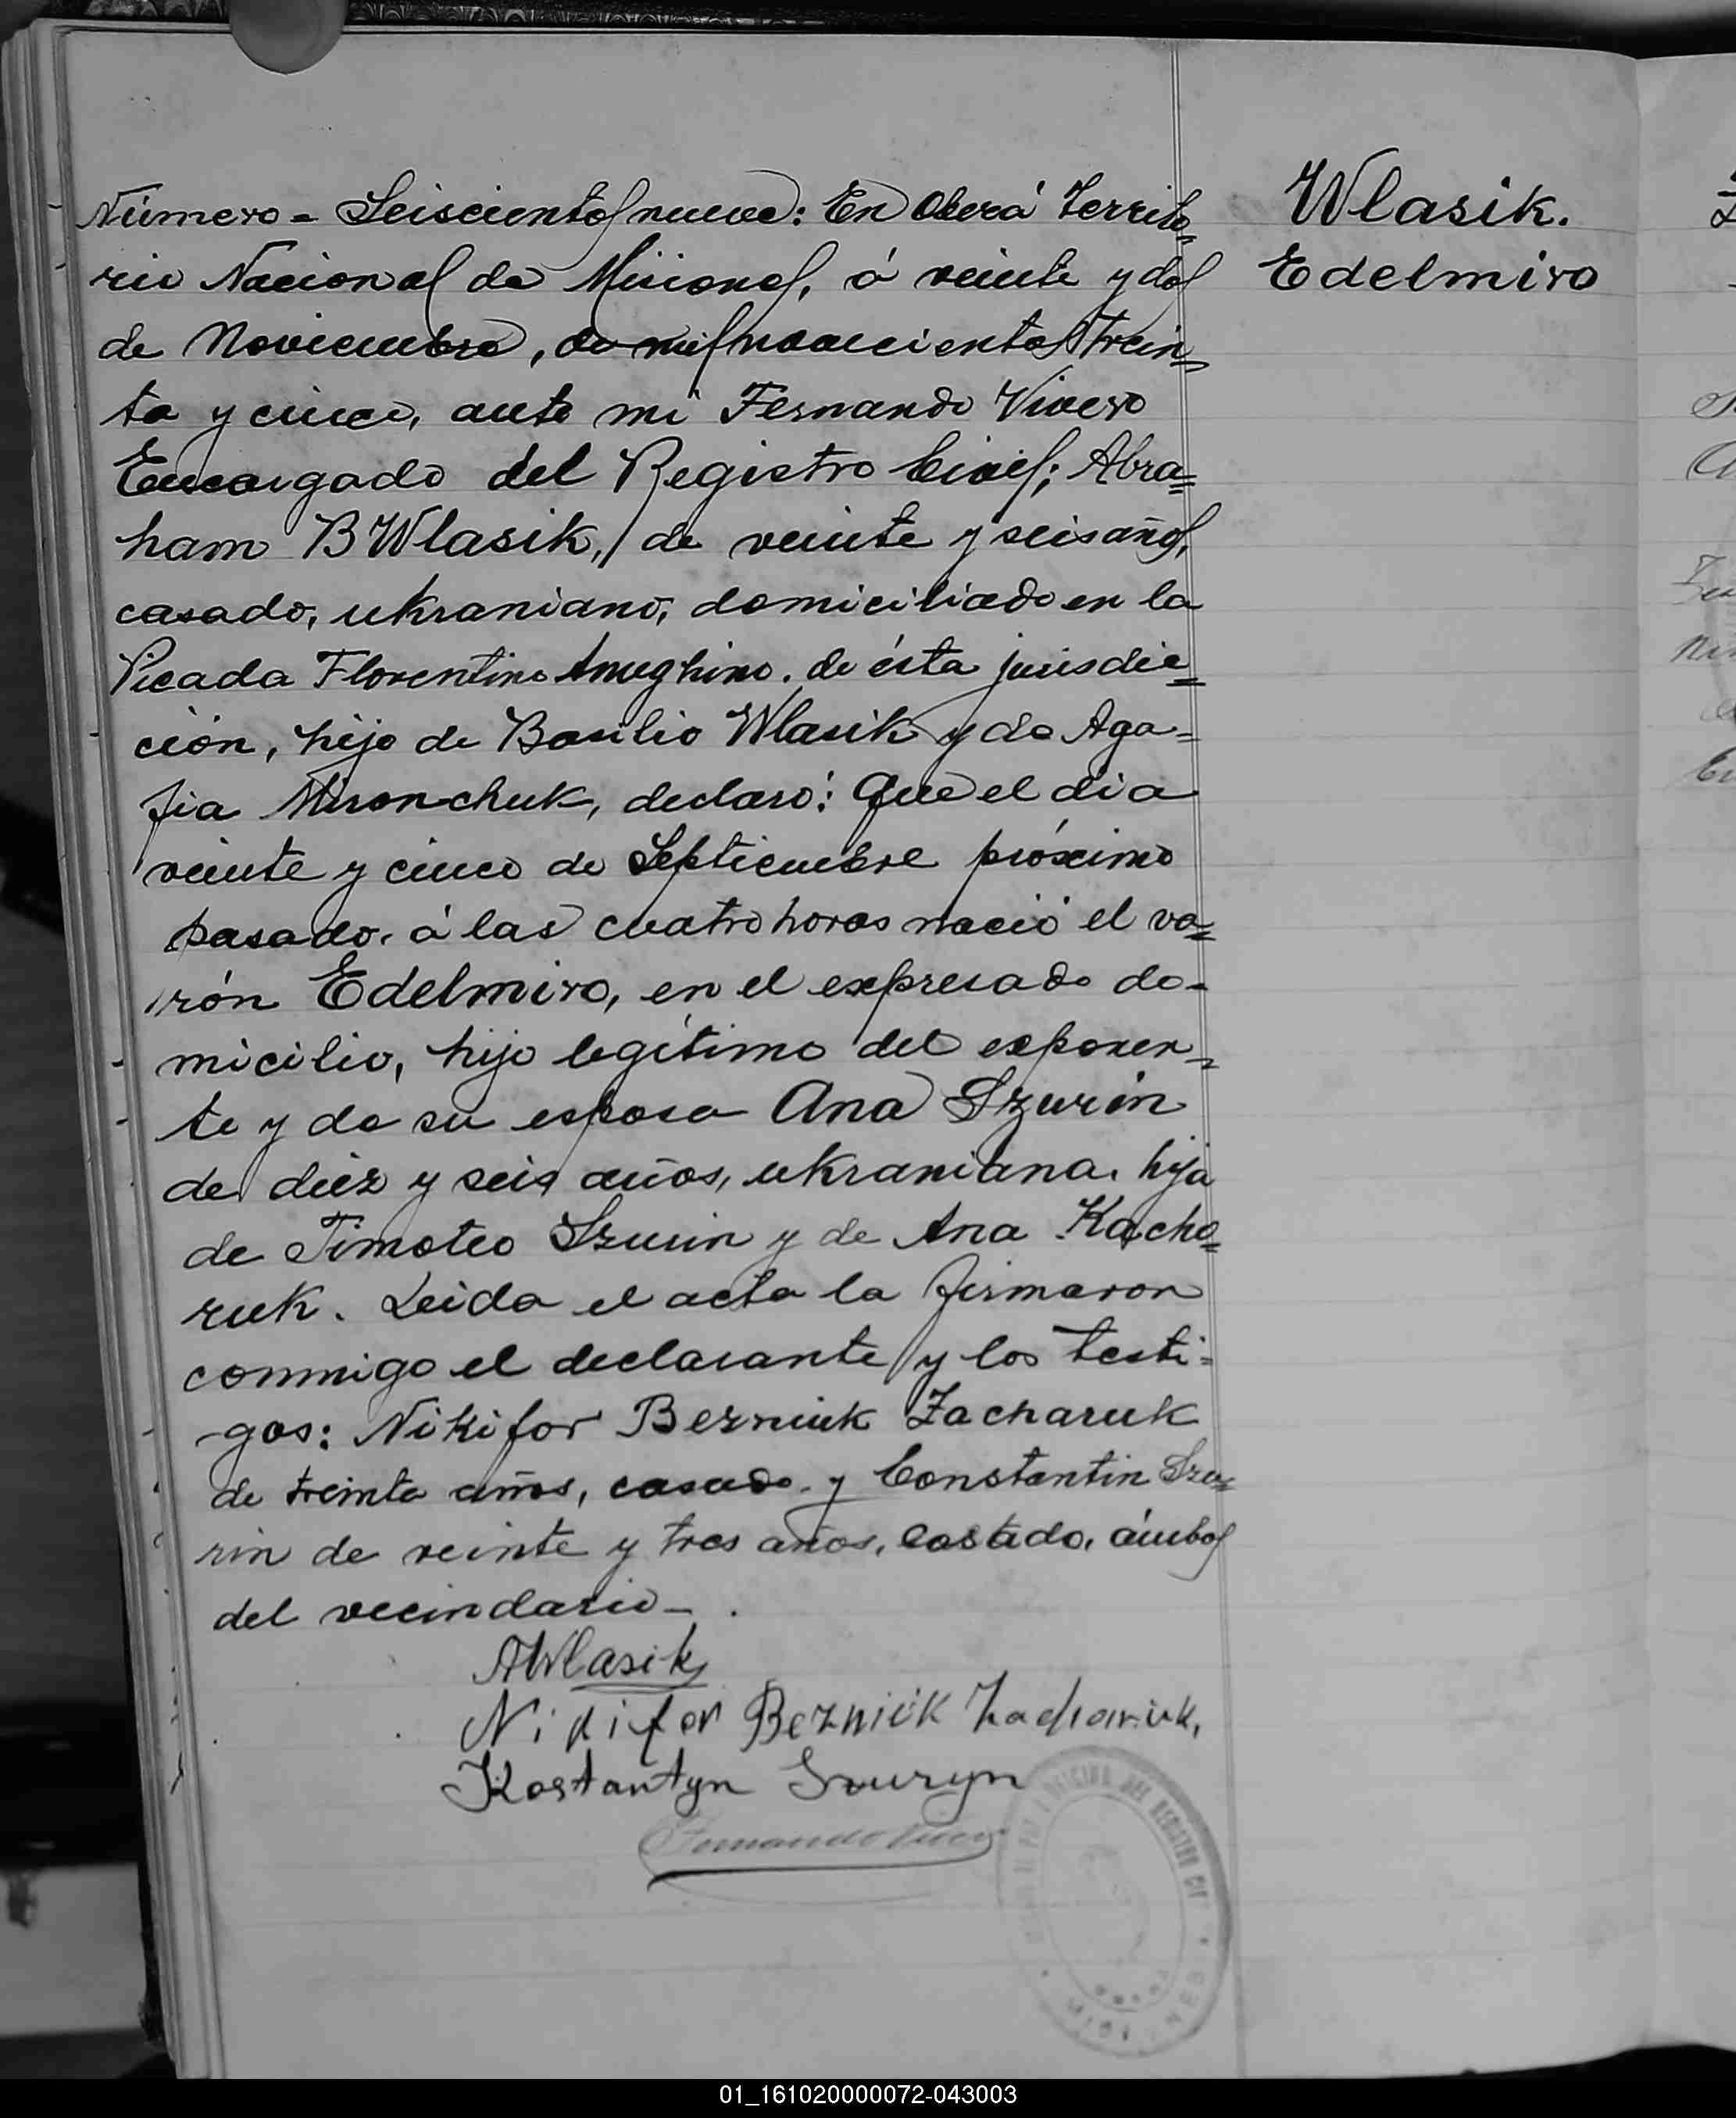 Wlasik.
Edelmiro
Número = Seiscientos nueve: En Oberá Territo=
rio Nacional de Misiones, á veinte y dos
de Noviembre, de mil novecientos trein=
ta y cinco, ante mi Fernando Vivero
Encargado del Registro Civil; Abra=
ham B Wlasik, de veinte y seis años,
casado, ukraniano, domiciliado en la
Picada Florentino Ameghino. de ésta jurisdic=
ción, hijo de Basilio Wlasik y de Aga=
fia Mironchuk, declaró: Que el dia
veinte y cinco de Septiembre próximo
pasado, á las cuatro horas nació el va=
rón Edelmiro, en el expresado do-
micilio, hijo legítimo del exponen=
te y de su esposa Ana Szurin
de diez y seis años, ukraniana. hija
de Timoteo Szurin y de Ana Kacho=
ruk. Leida el acta la firmaron
conmigo el declarante y los testi=
gos: Nikifor Bezniuk Zacharuk
de treinta años, casado. y Constantin Szu=
rin de veinte y tres años, casado, ámbos
del vecindario_ .
AWlasik
Nikifor Bezniuk Zachariuk,
Kostantyn Szuryn
Fernando Vivero
OFICINA DEL REGISTRO CIV
OBERA
MISIONES
01_161020000072-043003